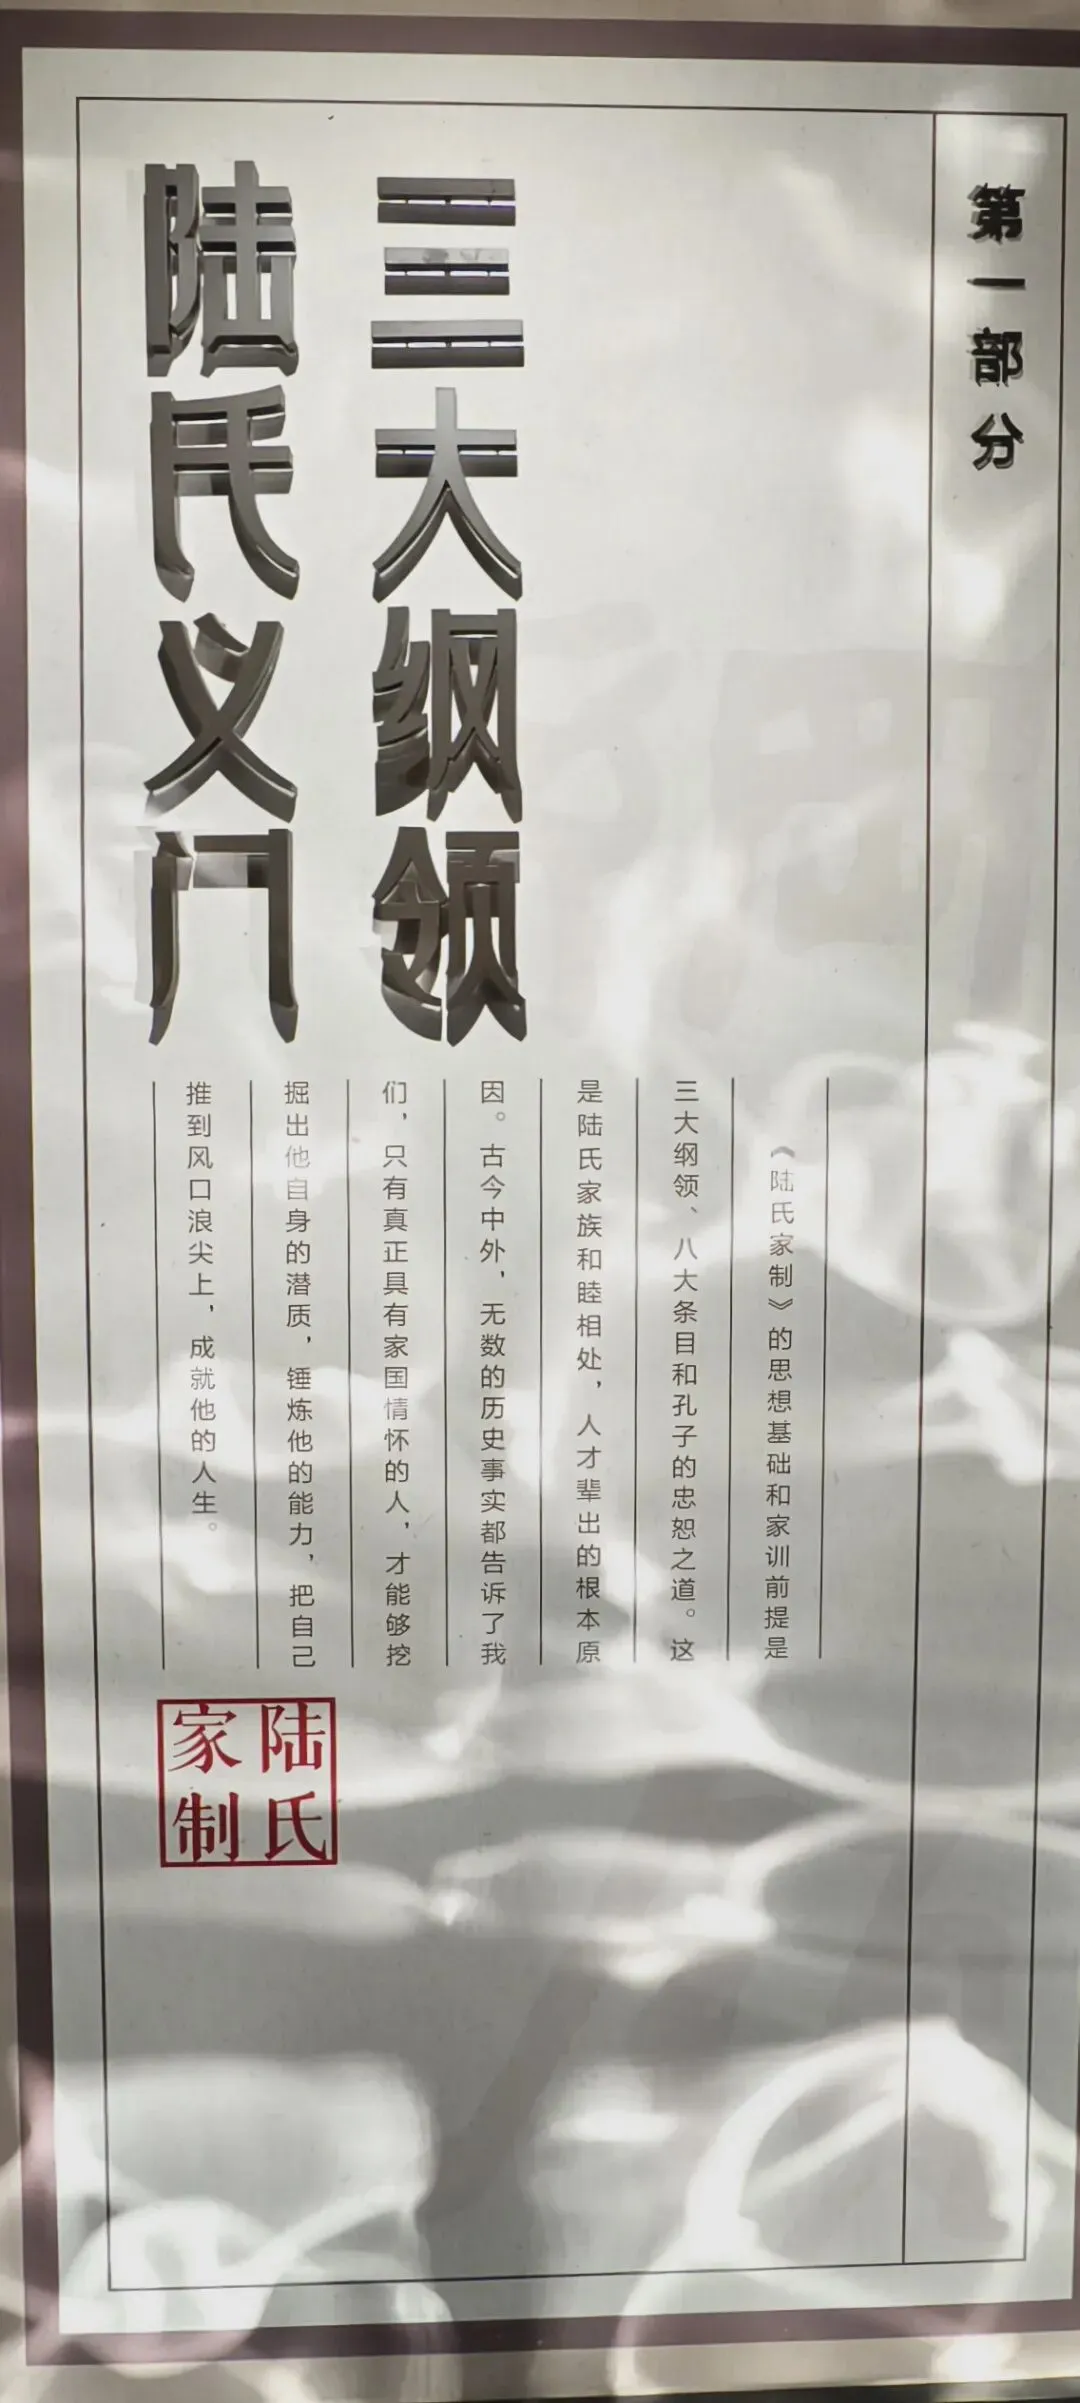 第一部分
三大纲领
陆氏义门
《陆氏家制》的思想基础和家训前提是
三大纲领、八大条目和孔子的忠恕之道。这
是陆氏家族和睦相处，人才辈出的根本原
因。古今中外，无数的历史事实都告诉了我
们，只有真正具有家国情怀的人，才能够挖
掘出他自身的潜质，锤炼他的能力，把自己
推到风口浪尖上，成就他的人生。
陆氏
家制